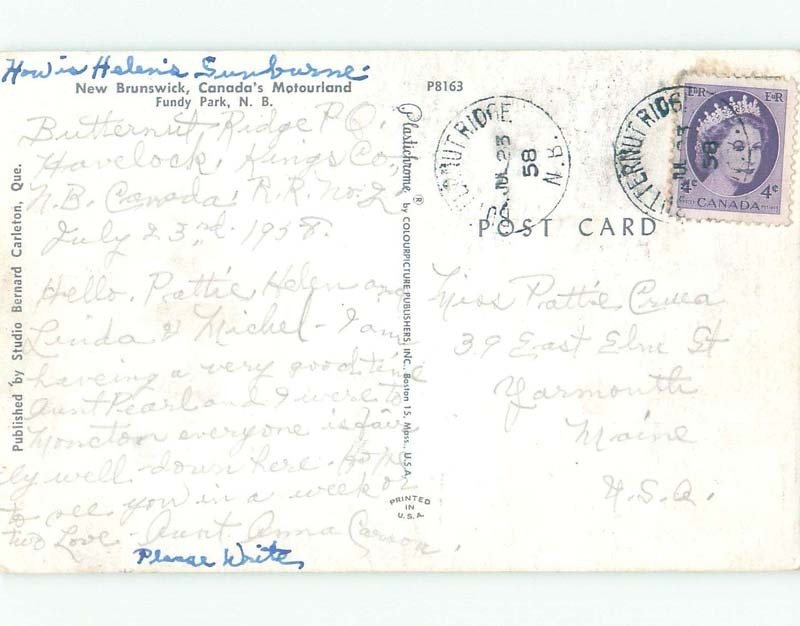 How is Helen's Sunburne.
New Brunswick, Canada's Motourland
Fundy Park, N. B.
P8163
Butternut Ridge P.O.
Havelock, Kings Co.,
N.B. Canada. R.R. No. 2
July 23rd 1958.
Hello, Pattie, Helen and
Linda & Michel - I am
haveing a very good time
Aunt Pearl and I were to
Moncton everyone is fair
ly well down here. Hope
to see you in a week or
two Love - Aunt Anna Carson.
Please Write,
Published by Studio Bernard Carleton, Que.
Plastichrome ® by COLOURPICTURE PUBLISHERS, INC., Boston 15, Mass., U.S.A.
PRINTED
IN
U.S.A.
BUTTERNUT RIDGE
JUL 23
58
N.B.
BUTTERNUT RIDGE
JUL 23
58
E II R E II R
4¢ 4¢
POSTES CANADA POSTAGE
POST CARD
Miss Pattie
39 East Elm St
Yarmouth
Maine
U.S.A.